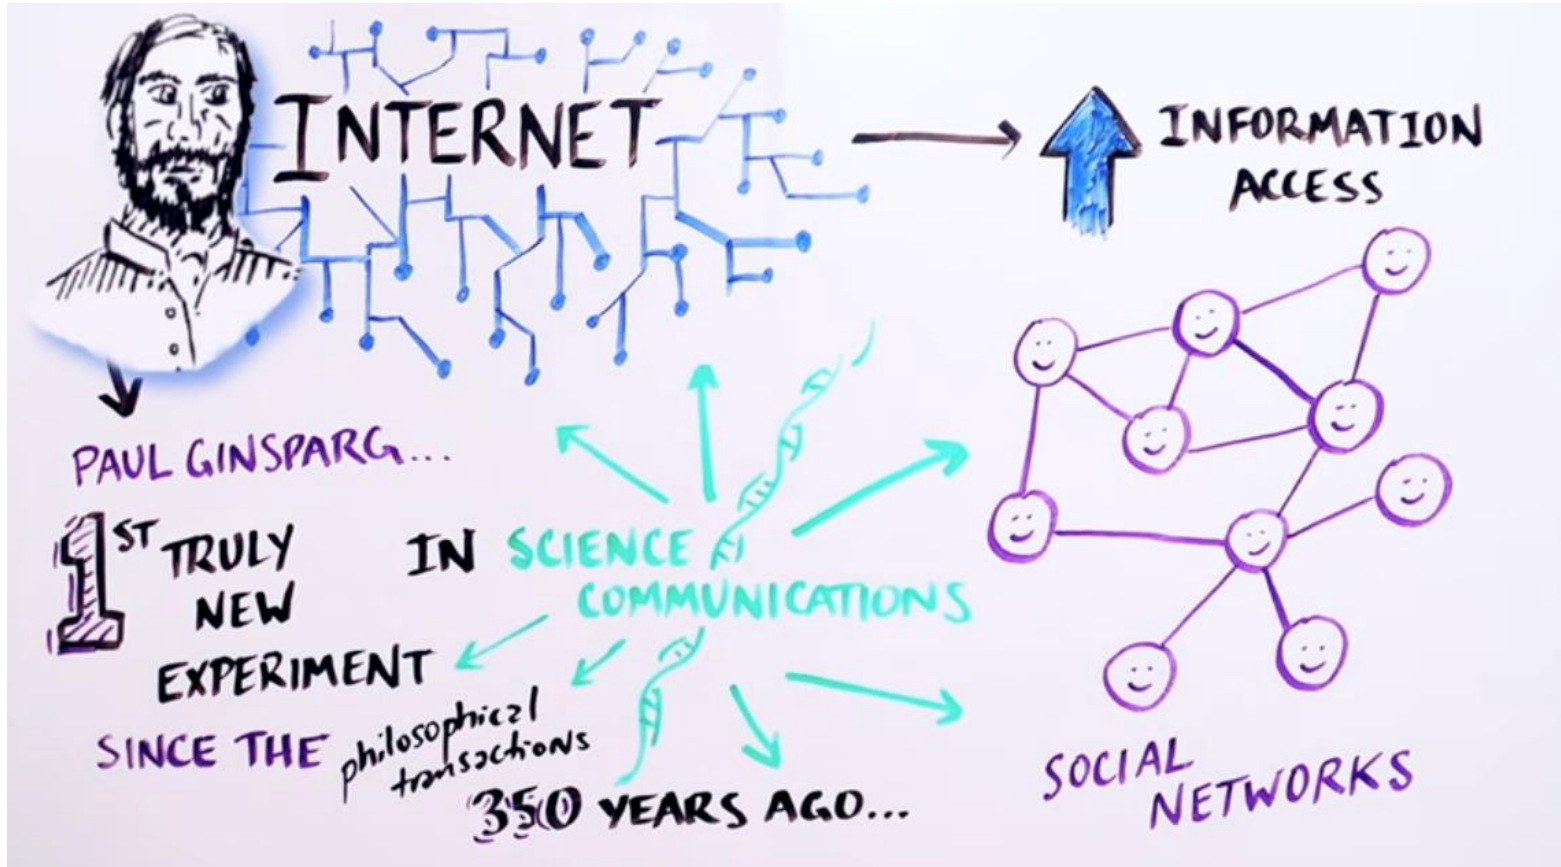 INTERNET
INFORMATION
ACCESS
PAUL GINSPARG...
1ST TRULY
NEW
EXPERIMENT
IN SCIENCE
COMMUNICATIONS
SINCE THE philosophical
transactions
350 YEARS AGO...
SOCIAL
NETWORKS